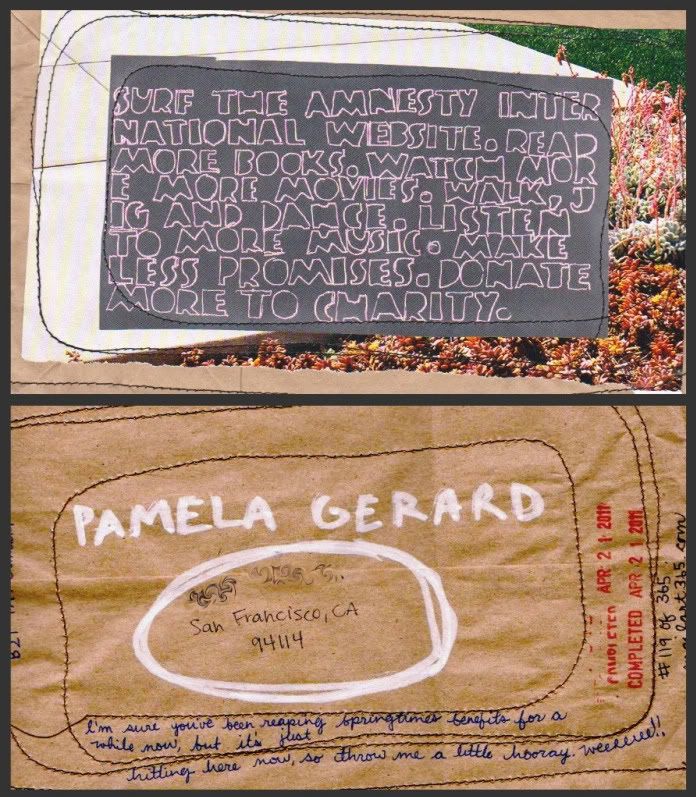 SURF THE AMNESTY INTER
NATIONAL WEBSITE. READ
MORE BOOKS. WATCH MOR
E MORE MOVIES. WALK, J
IG AND DANCE. LISTEN
TO MORE MUSIC. MAKE
LESS PROMISES. DONATE
MORE TO CHARITY.
PAMELA GERARD
San Francisco, CA
94114
APR 21 2011
COMPLETED APR 21 2011
#119 of 365
mailart365.com
I'm sure you've been reaping springtimes benefits for a
while now, but it's just
hitting here now, so throw me a little hooray. weeeeee!!